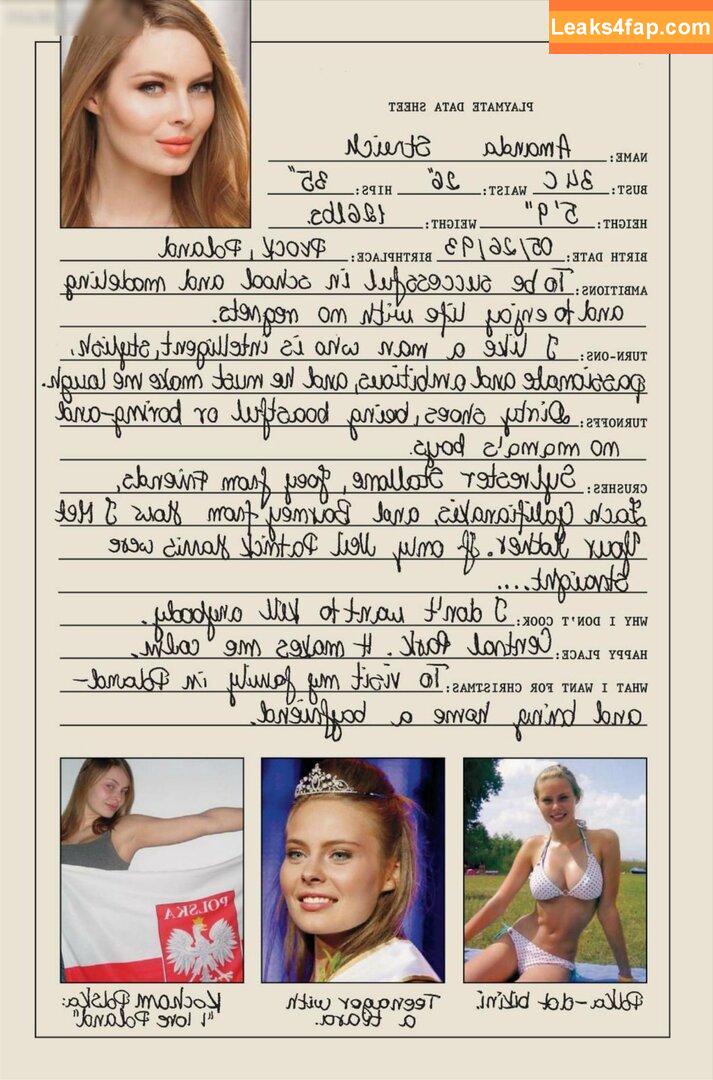 Leaks4fap.com
PLAYMATE DATA SHEET
NAME: Amanda Streich
BUST: 34C WAIST: 26" HIPS: 35"
HEIGHT: 5'9" WEIGHT: 126lbs.
BIRTH DATE: 05/26/93 BIRTHPLACE: Płock, Poland
AMBITIONS: To be successful in school and modeling
and to enjoy life with no regrets.
TURN-ONS: I like a man who is intelligent, stylish,
passionate and ambitious, and he must make me laugh.
TURNOFFS: Dirty shoes, being boastful or boring-and
no mama's boys.
CRUSHES: Sylvester Stallone, Joey from Friends,
Zach Galifianakis, and Barney from How I Met
Your Mother. If only Neil Patrick Harris were
straight....
WHY I DON'T COOK: I don't want to kill anybody.
HAPPY PLACE: Central Park. It makes me calm.
WHAT I WANT FOR CHRISTMAS: To visit my family in Poland-
and bring home a boyfriend.
POLSKA
Polka-dot bikini.
Teenager with
a tiara.
Kocham Polska:
"I love Poland"